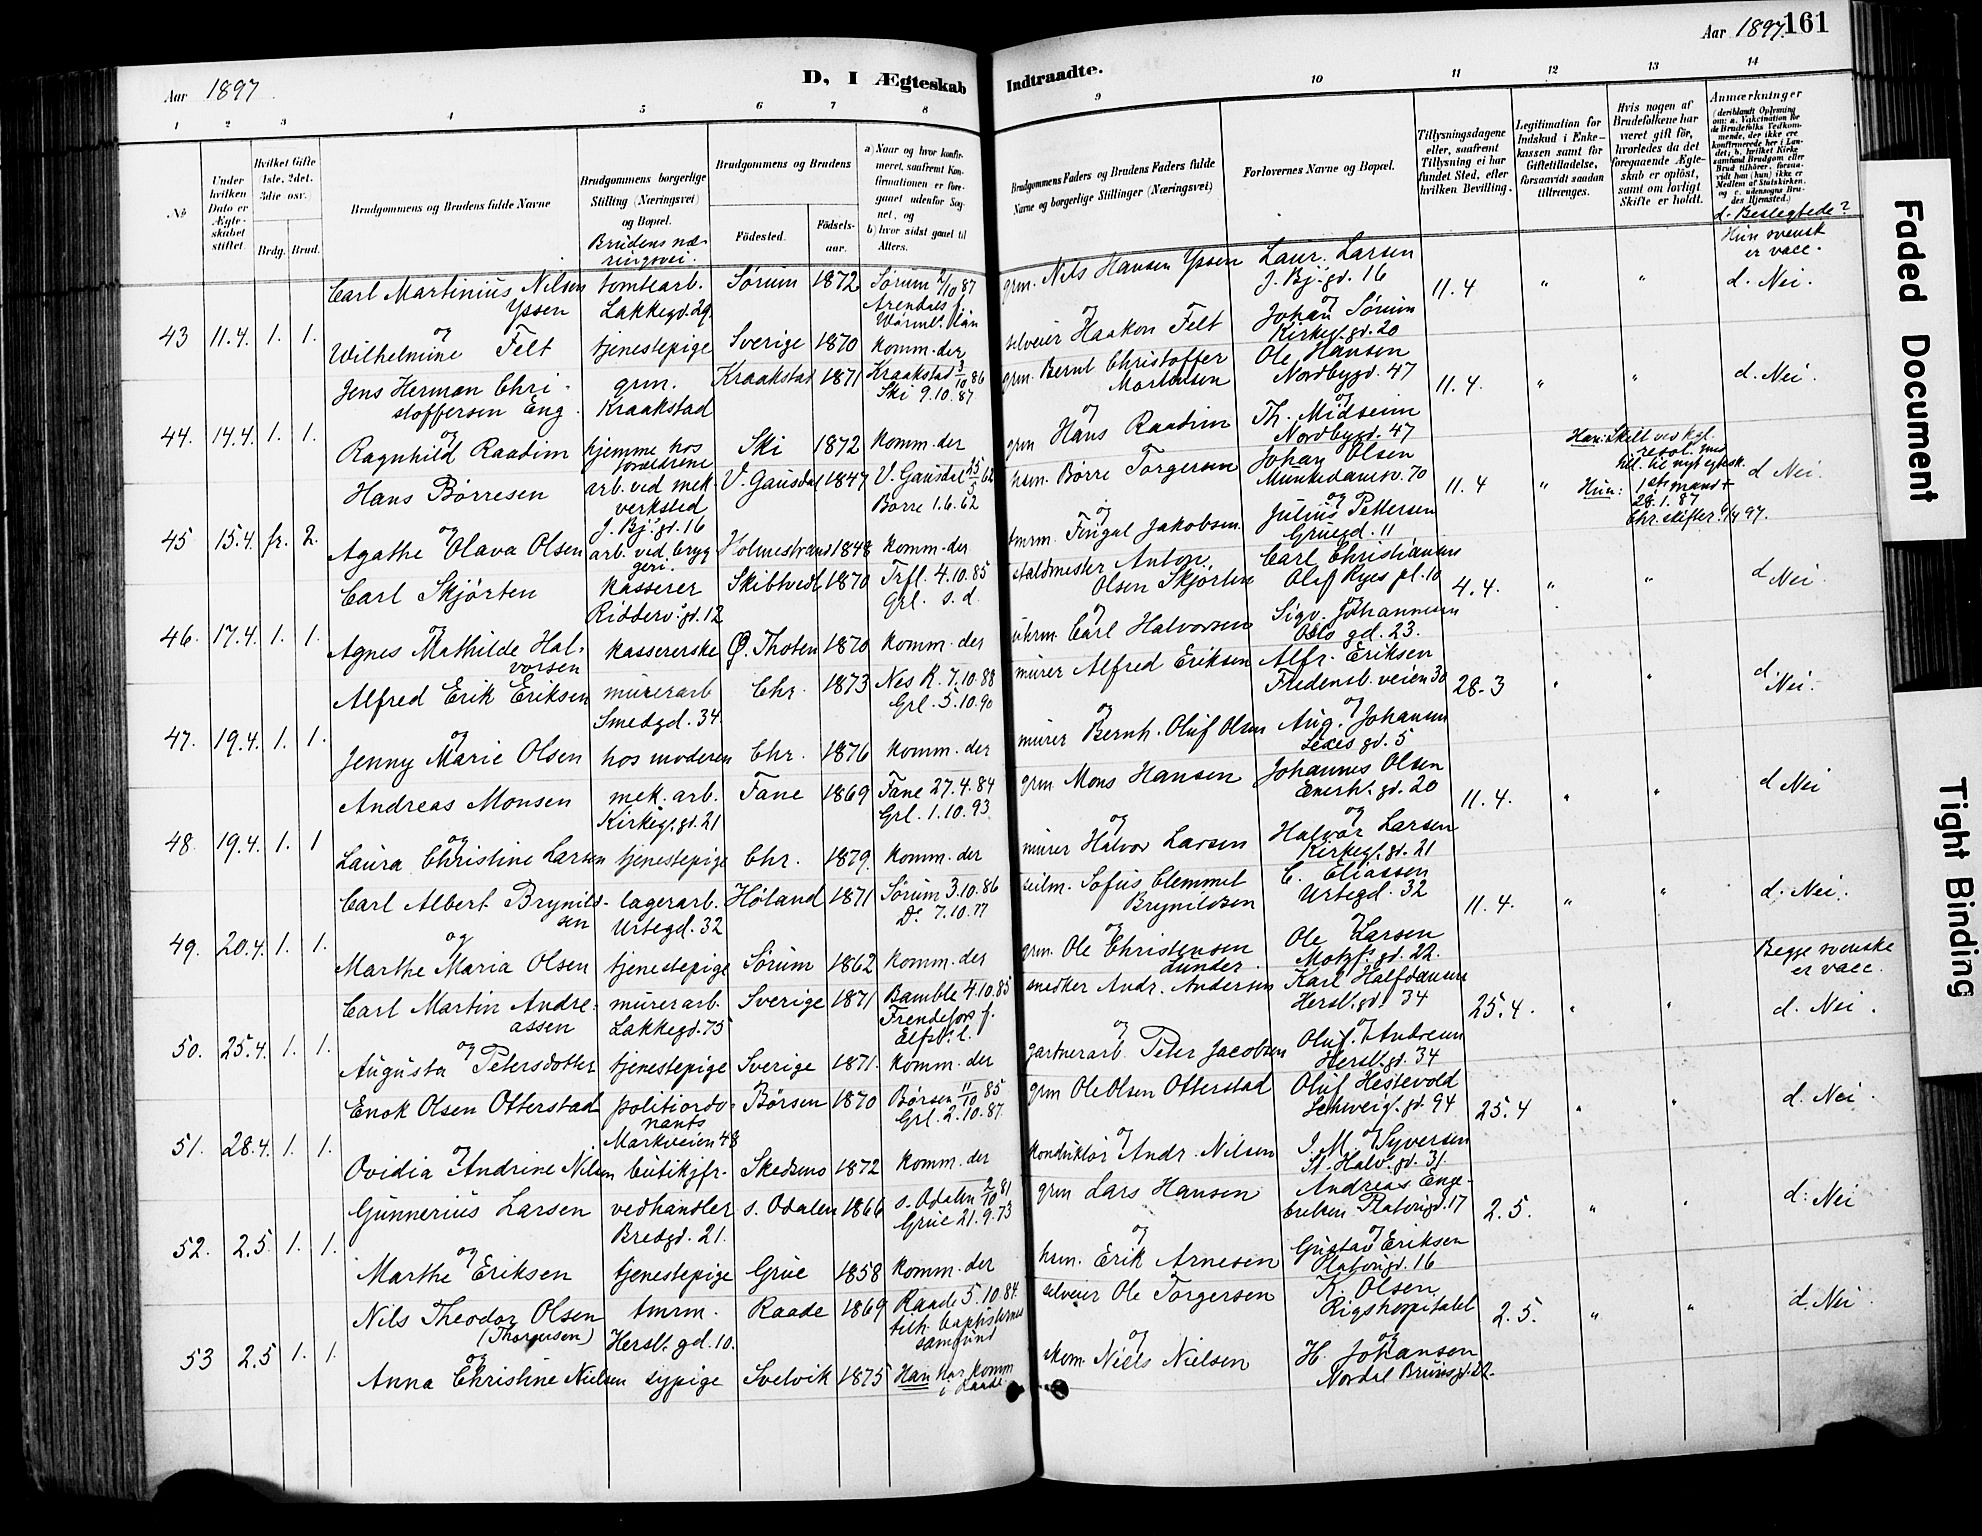 Aar 1897
D, I Ægteskab
Indtraadte.
Aar 1897. 161
1 2 3 4 5 6 7 8 9 10 11 12 13 14
No.
Under hvilken Dato er Ægteskabet stiftet.
Hvilket Gifte 1ste, 2det, 3die osv.
Brdg. Brud.
Brudgommens og Brudens fulde Navne
Brudgommens borgerlige Stilling (Næringsvei) og Bopæl.
Brudens næringsvei.
Brudgommens og Brudens
Fødested.
Fødselsaar.
a) Naar og hvor konfirmeret, saafremt Konfirmationen er foregaaet udenfor Sognet, og
b) hvor sidst gaaet til Alters.
Brudgommens Faders og Brudens Faders fulde Navne og borgerlige Stillinger (Næringsvei)
Forlovernes Navne og Bopæl.
Tillysningsdagene eller, saafremt Tillysning ei har fundet Sted, efter hvilken Bevilling.
Legitimation for Indskud i Enkekassen samt for Giftetilladelse, forsaavidt saadan tiltrænges.
Hvis nogen af Brudefolkene har været gift før, hvorledes da det foregaaende Ægteskab er opløst, samt om lovligt Skifte er holdt.
Anmærkninger
(deriblandt Oplysning om: a. Vakcination for de Brudefolks Vedkommende, der ikke ere konfirmerede her i Landet; b. hvilket Kirkesamfund Brudgom eller Brud tilhører, forsaavidt han (hun) ikke er Medlem af Statskirken, og c. udensogns Brudes Hjemsted.)
d. Beslegtede?
43 11.4. 1. 1. Carl Martinius Nilsen Yssen tomtearb. Lakkegd. 29 Sørum 1872 Sørum 2/10 87 grm. Nils Hansen Yssen Laur. Larsen J. Bj. gd. 16 11.4 " " Hun svensk er vacc. d. Nei.
og Wilhelmine Felt tjenestepige Sverige 1870 komm. der selveier Haakon Felt og Johan Sørum Kirkegl. gd. 20
44. 14.4. 1. 1. Jens Herman Christoffersen Eng grm. Kraakstad Kraakstad 1871 Kraakstad 3/10 86 Ski 9.10.87 grm. Bernt Christoffer Martinsen Ole Hansen Nordbygd. 47 11.4. " " d. Nei.
og Ragnhild Raadim hjemme hos forældrene Ski 1872 komm. der grm Hans Raadim og Th. Midseim Nordbygd. 47
45 15.4. fr. 2. Hans Børresen arb. ved mek. verksted J. Bj. gt. 16 V. Gausdal 1847 V. Gausdal 25/5 62 Borre 1.6.62 hsm. Børre Torgersen Johan Olsen Munkedamsv. 70 11.4 " Han: Skilt ved kgl. resol. med till. til nyt egtesk. Hun: 1ste mand + 28.1.87 Chr. skifter 9/4 97. d Nei.
og Agathe Olava Olsen arb. ved bryggeri. Holmestrand 1848 komm. der tmrm. Fingal Jakobsen og Julius Pettersen Gruegd. 11
46. 17.4. 1. 1. Carl Skjørten kasserer Ridderv. gd. 12 Skibtvedt 1870 Trfl. 4.10.85 Grl. s. d. staldmester Anton Olsen Skjorten Carl Christiansen Olaf Ryes pl. 10 4.4. " " d Nei.
og Agnes Mathilde Halvorsen kassererske Ø. Thoten 1870 komm. der Carl Halvorsen og Sigv. Johannesen Oslo gd. 23.
47. 19.4. 1. 1. Alfred Erik Eriksen murerarb Smedgd. 34. Chr. 1873 Nes R. 7.10.88 Grl. 5.10.90 murer Alfred Eriksen Alfr. Eriksen Fredensb. veien 30 28.3 " " d. Nei.
og Jenny Marie Olsen hos moderen Chr. 1876 komm. der murer Bernh. Oluf Olsen og Aug. Johansen Sexes gd. 5
48. 19.4. 1. 1 Andreas Monsen mek. arb. Kirkegl. gt. 21 Fane 1869 Fane 27.4.84 Grl. 1.10.93 grm Mons Hansen Johannes Olsen Enerh. gd. 20 11.4. " " d Nei
og Laura Christine Larsen tjenestepige Chr. 1879. komm. der murer Halvor Larsen og Halvor Larsen Kirkegl. gd. 21
49. 20.4. 1. 1. Carl Albert Brynildsen lagerarb. Urtegd. 32 Høland 1871 Sørum 3.10.86 Do. 7.10.77 seilm. Sofus Clemmet Brynildsen C. Eliassen Urtegd. 32 11.4. " " d. Nei.
og Marthe Maria Olsen tjenestepige Sørum 1862 komm. der grm. Ole Christensen Lunder og Ole Larsen Motzf. gd. 22.
50. 25.4. 1. 1. Carl Martin Andreassen murerarb. Lakkegd. 75 Sverige 1871 Bamble 4.10.85 Frendefors f. Elfsb. l. snedker Andr. Andersen Karl Halfdansen Herslb. gd. 34 25.4. " " Begge svenske er vacc. d. Nei.
og Augusta Petersdotter tjenestepige Sverige 1871. komm. der gartnerarb. Peter Jacobsen og Oluf Andresen Herslb. gd. 34
51. 28.4. 1. 1. Enok Olsen Otterstad politiordonnants Markveien 48 Børsen 1870 Børsen 11/10 85 Grl. 2.10.87. grm Ole Olsen Otterstad Oluf Hestevold Schweig. gd. 94 25.4 " " d. Nei.
og Ovidia Andrine Nilsen butikjfr. Skedsmo 1872 komm. der konduktør Andr. Nilsen og J. M. Syversen St. Halv. gd. 31.
52. 2.5. 1. 1. Gunnerius Larsen vedhandler Bredgd. 21. s. Odalen 1866 s. Odalen 2/10 81 Grue 21.9.73 grm Lars Hansen Andreas Engebretsen Platougd. 17 2.5. " " d. Nei
og Marthe Eriksen tjenestepige Grue 1858 komm. der hsm. Erik Arnesen og Gustav Eriksen Platougd. 16
53 2.5 1. 1. Nils Theodor Olsen (Thorgersen) tmrm. Herslb. gd. 10. Raade 1869 Raade 5.10.84. tilh. baptisternes samfund selveier Ole Torgersen K. Olsen Rigshospitalet 2.5. " " d. Nei.
og Anna Christine Nielsen sypige Svelvik 1875 Han har komm. i Raade skom. Niels Nielsen og H. Johansen Nordal Brunsgd. 22.
Faded Document
Tight Binding